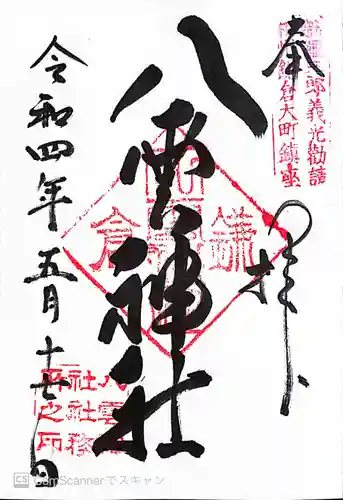 奉拝
新羅三郎義光勧請
鎌倉大町鎮座
八雲神社
鎌倉
令和四年五月十七日
八雲
社社務
所之印
CS CamScannerでスキャン